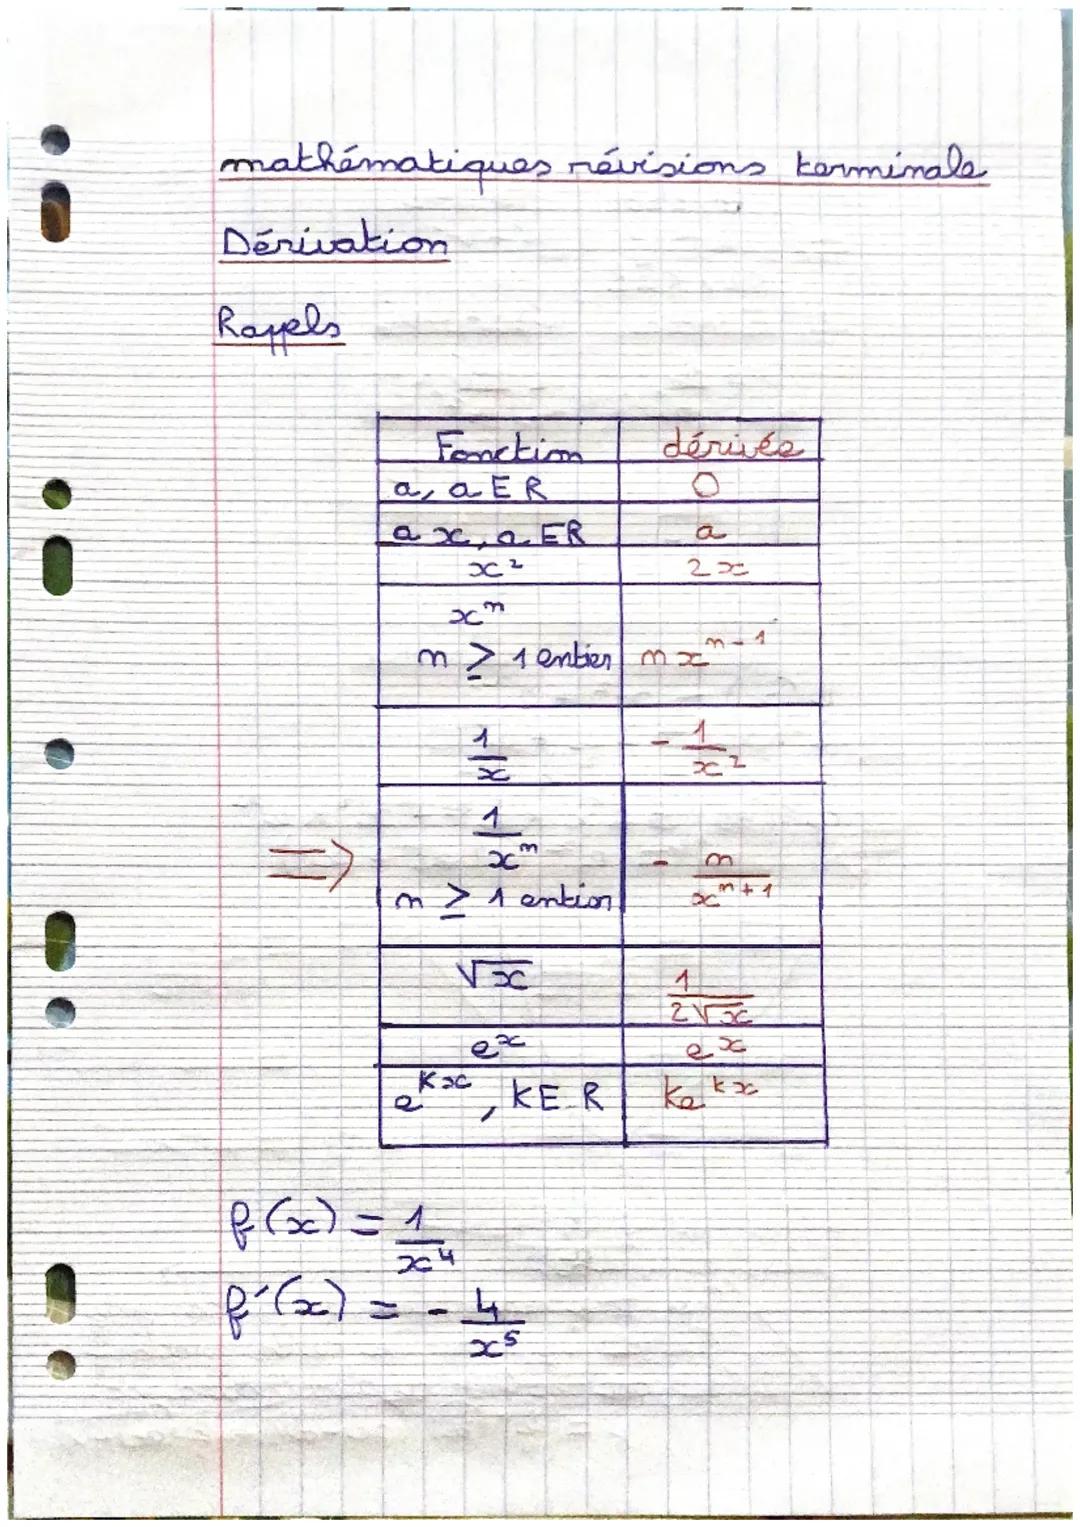 mathématiques révisions terminale
Dérivation
Rappels
Fonction dérivée
a, a E R 0
a x, a E R a
x² 2x
x^n
n ≥ 1 entier n x^(n-1)
1/x - 1/x²
1/x^n
⇒ - n/x^(n+1)
n ≥ 1 entier
√x 1/(2√x)
e^x e^x
e^(Kx), K E R ke^(kx)
f(x) = 1/x⁴
f'(x) = - 4/x⁵